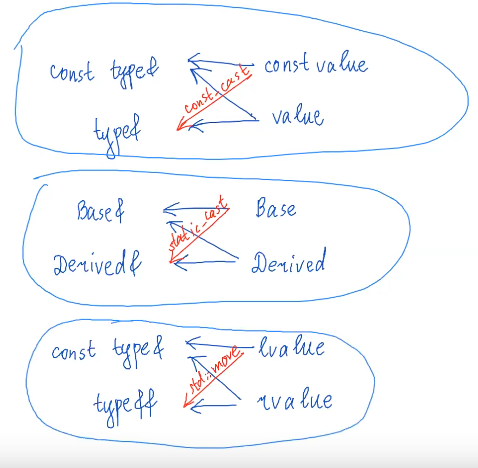 const type& const value
const_cast
type& value
Base& Base
static_cast
Derived& Derived
const type& lvalue
std::move
type&& rvalue